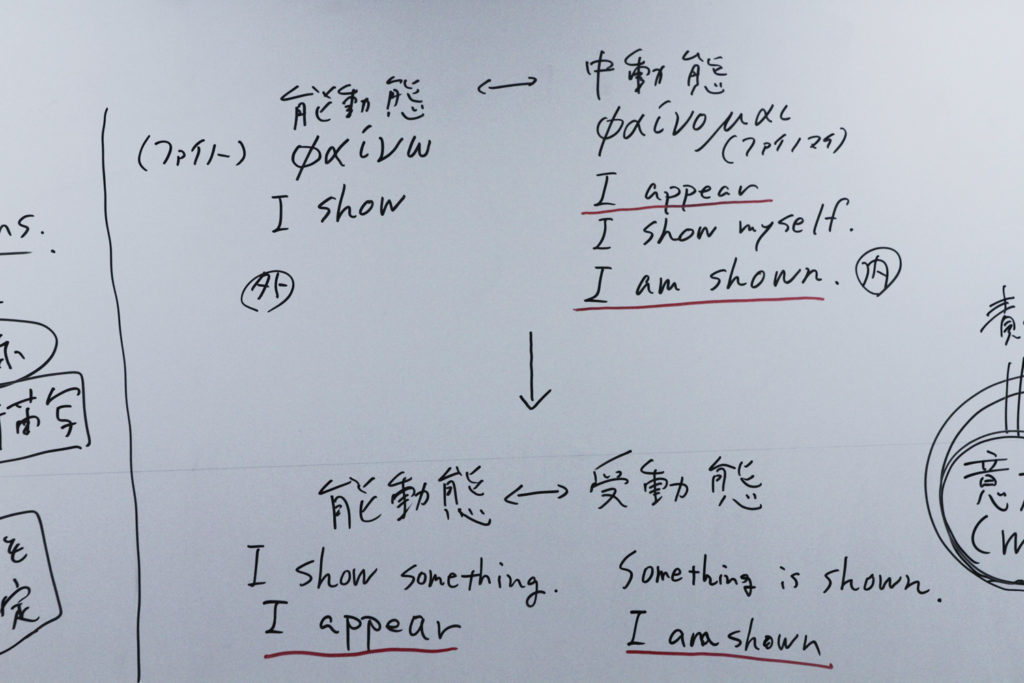 能動態 ⟷ 中動態
(ファイノー) φαίνω φαίνομαι
(ファイノマイ)
I show I appear
I show myself.
外 I am shown. 内
↓
能動態 ⟷ 受動態
I show something. Something is shown.
I appear I am shown
ns.
描写
定
責
意
(w